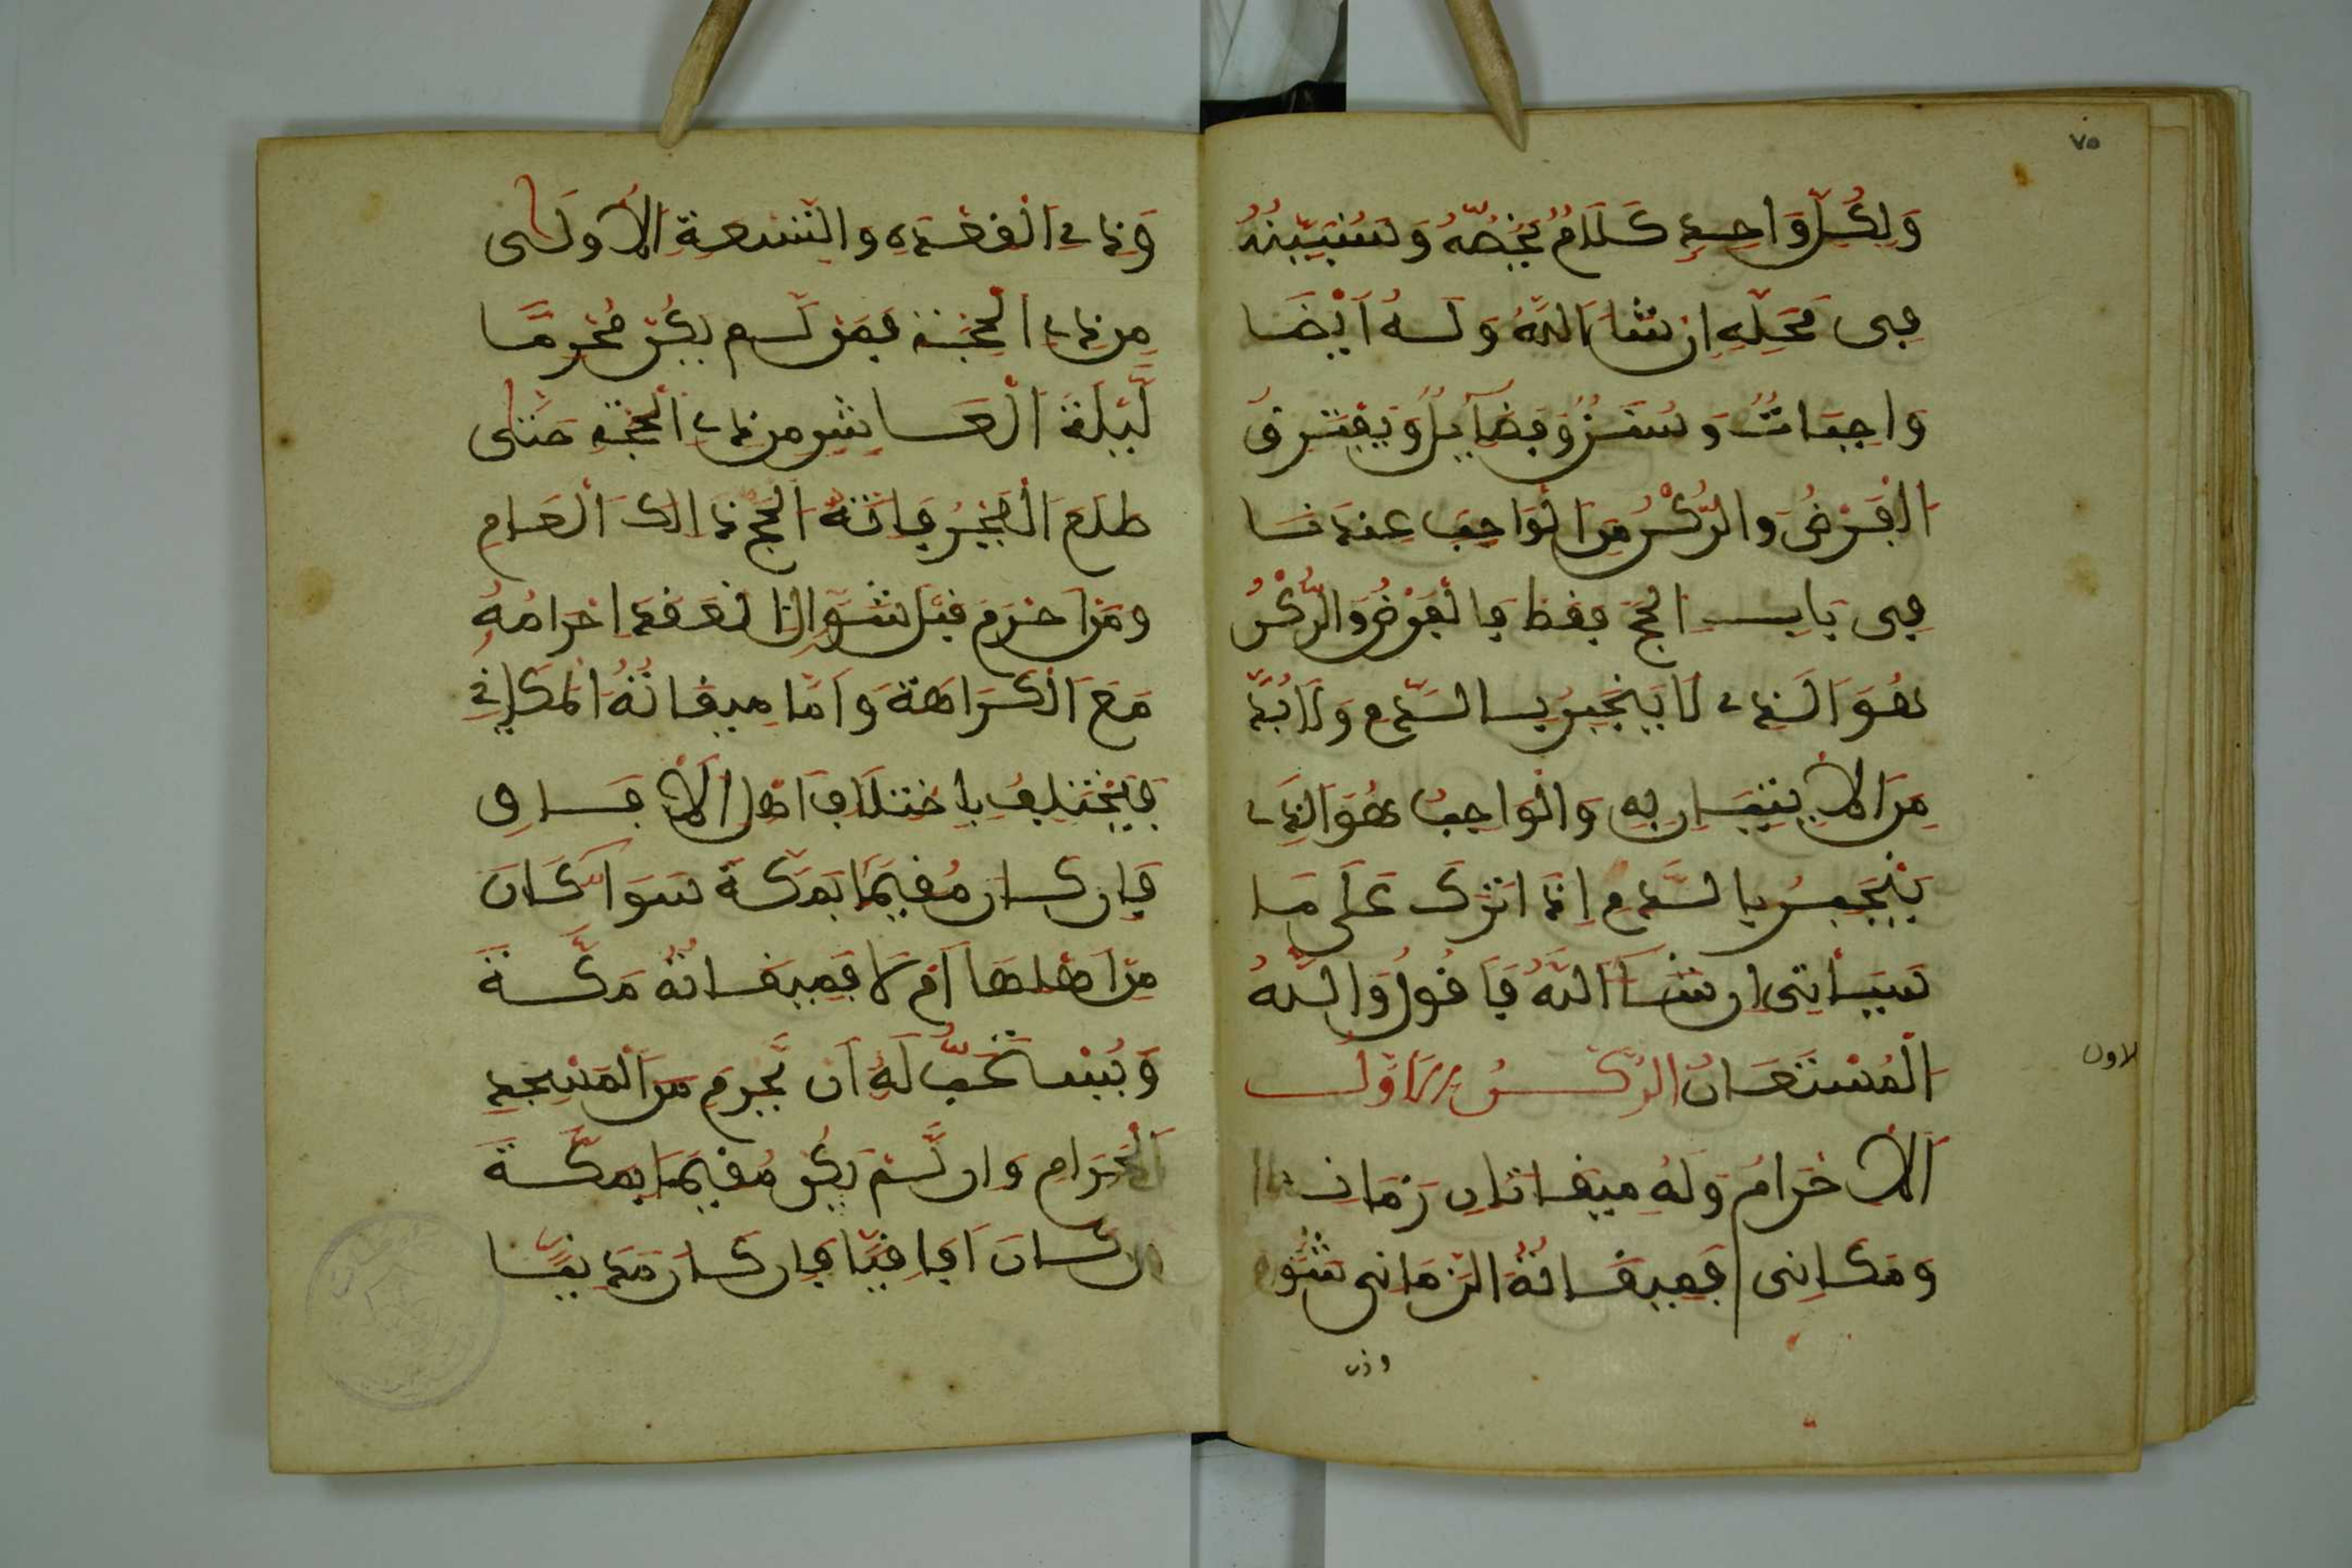 ٧٥
وَلِكُلِّ وَاحِدٍ كَلَامٌ يَخُصُّهُ وَسَنُبَيِّنُهُ
فِى مَحَلِّهِ اِن شَاءَ اللَّهُ وَلَهُ اَيْضًا
وَاجِبَاتٌ وَسُنَنٌ وَفَضَآيِلُ وَيَفْتَرِقُ
الْفَرْضُ وَالرُّكْنُ مِنَ الْوَاجِبِ عِندَنَا
فِى بَابِ الْحَجِّ فقط فَالْفَرْضُ وَالرُّكْنُ
هُوَ الَّذِى لَا يَنْجَبِرُ بِالدَّمِ وَلَابُدَّ
مِنَ الْاِتْيَانِ بِهِ وَالْوَاجِبُ هُوَ الَّذِى
يَنْجَبِرُ بِالدَّمِ اِذَا تُرِكَ عَلَى مَا
سَيَأْتِى اِن شَاءَ اللَّهُ فَاَقُولُ وَاللَّهُ
الْمُسْتَعَانُ الرُّكْنُ الْاَوَّلُ
الاول
الْاِحْرَامُ وَلَهُ مِيقَاتَانِ زَمَانِى
وَمَكَانِى فَمِيقَاتُهُ الزَّمَانِى شَوَّال
وذى
وَذِى الْقَعْدَهِ وَالتِّسْعَةِ الْاُولَى
مِن ذِى الْحِجَّة فَمَن لَّم يَكُن مُحْرِمًا
لَّيْلَةَ الْعَاشِرِ مِن ذِى الْحِجَّةِ حَتَّى
طَلَعَ الْفَجْرُ فَاتَهُ الْحَجُّ ذَالِكَ الْعَامِ
وَمَنْ اَحْرَمَ قَبْلَ شَوَّال انْعَقَدَ اِحْرَامُهُ
مَعَ الْكَرَاهَةِ وَاَمَّا مِيقَاتُهُ الْمَكَانِى
فَيَخْتَلِفُ بِاخْتِلَافِ اَهْلِ الْاَفَاقِ
فَاِن كَانَ مُقِيمًا بِمَكَّةَ سَوَا كَانَ
مِنْ اَهْلِهَا اَمْ لَا فَمِيقَاتُهُ مَكَّةَ
وَيُسْتَحَبُّ لَهُ اَن يُّحْرِمَ مِنَ الْمَسْجِدِ
الْحَرَامِ وَاِن لَّمْ يَكُن مُقِيمًا بِمَكَّةَ
بَلْ كَانَ اَفَاقِيًّا فَاِن كَانَ مَدَنِيًّا